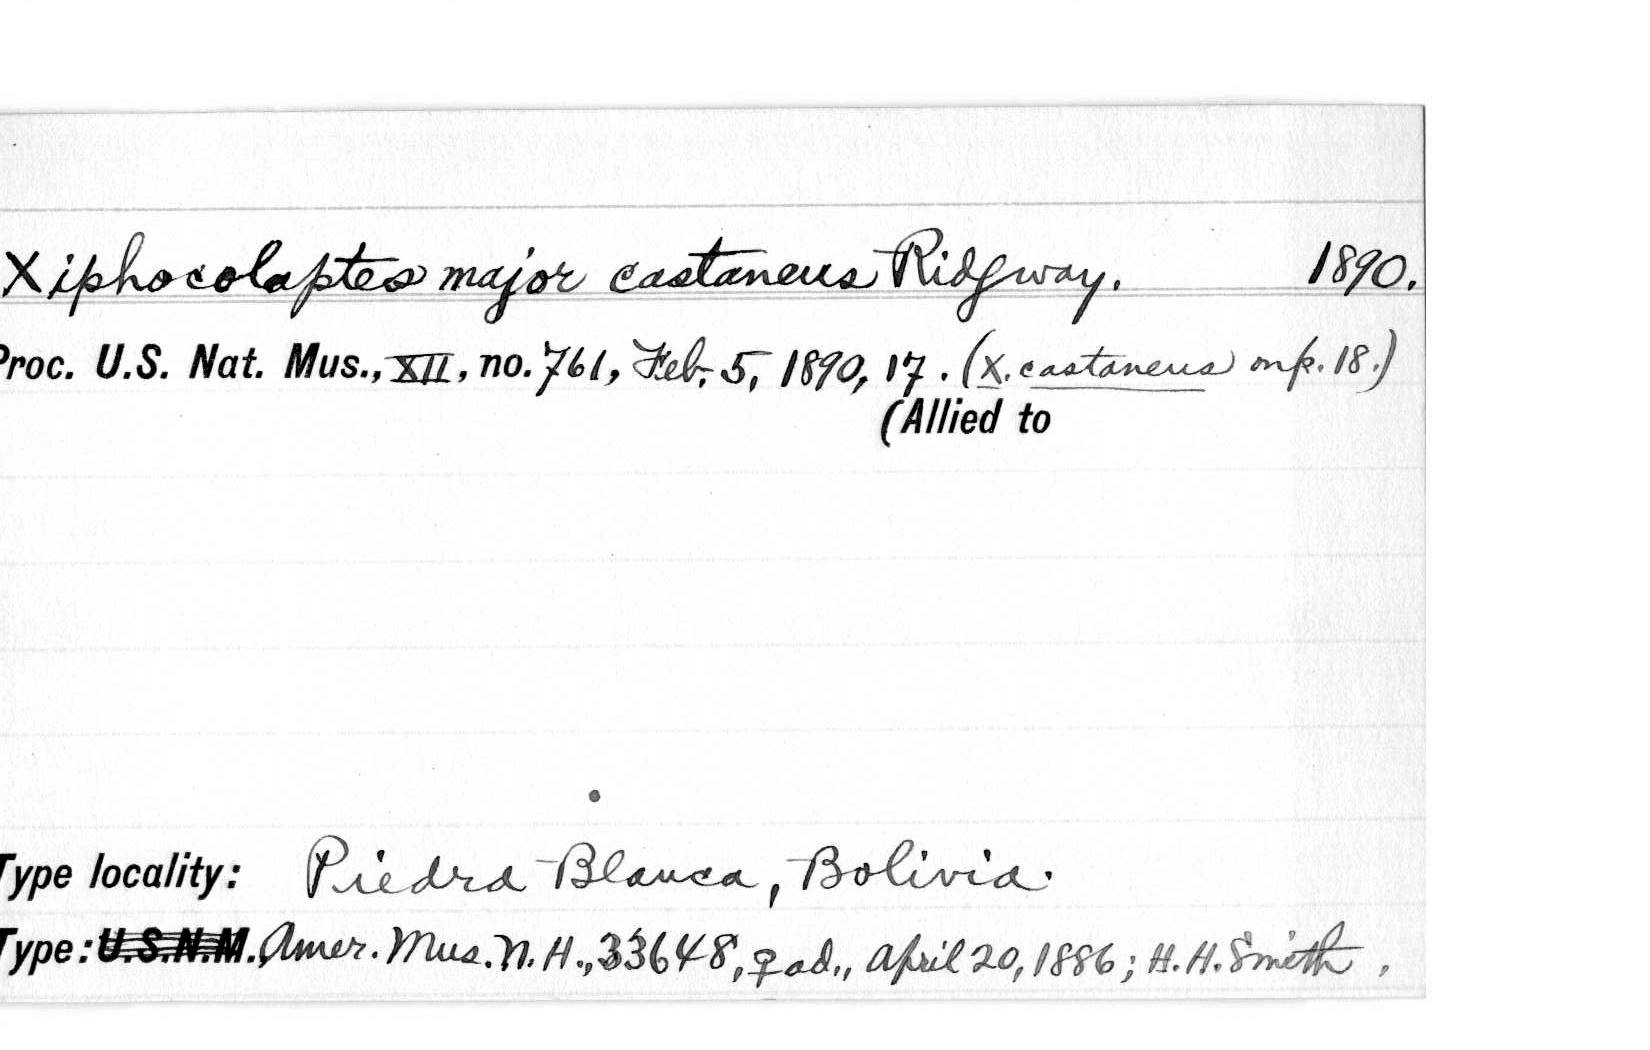 Xiphocolaptes major castaneus Ridgway. 1890.
Proc. U.S. Nat. Mus., XII, no. 761, Feb. 5, 1890, 17. (X. castaneus on p. 18.)
(Allied to
Type locality: Piedra Blanca, Bolivia.
Type: U.S.N.M., Amer. Mus. N. H., 33648, ♀ ad., April 20, 1886; H. H. Smith.